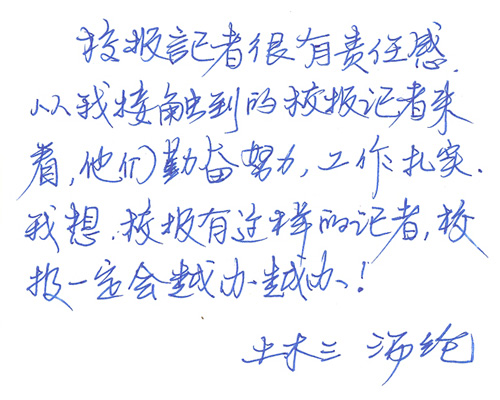 校报記者很有责任感.
从我接触到的校报记者来
看,他们勤奋努力,工作扎实.
我想.校报有这样的记者,校
报一定会越办越办!
土木三